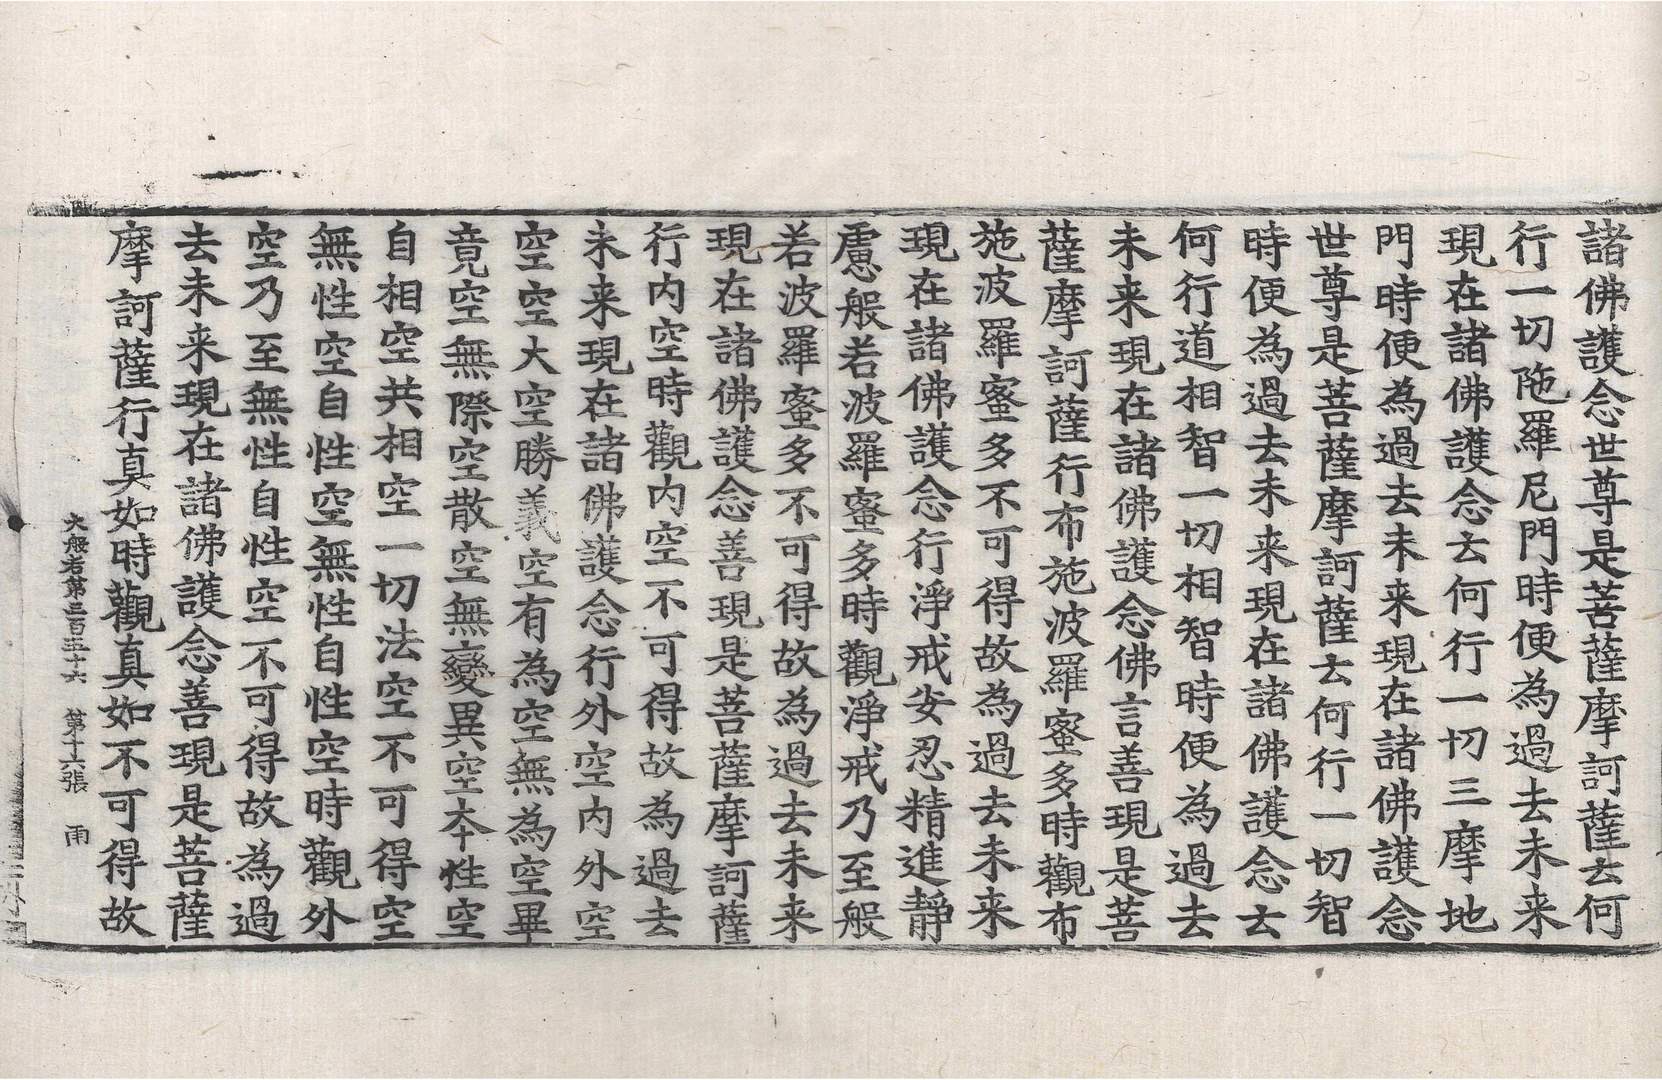 諸佛護念世尊是菩薩摩訶薩云何
行一切陁羅尼門時便為過去未来
現在諸佛護念云何行一切三摩地
門時便為過去未来現在諸佛護念
世尊是菩薩摩訶薩云何行一切智
時便為過去未来現在諸佛護念云
何行道相智一切相智時便為過去
未来現在諸佛護念佛言善現是菩
薩摩訶薩行布施波羅蜜多時觀布
施波羅蜜多不可得故為過去未来
現在諸佛護念行淨戒安忍精進靜
慮般若波羅蜜多時觀淨戒乃至般
若波羅蜜多不可得故為過去未来
現在諸佛護念善現是菩薩摩訶薩
行内空時觀内空不可得故為過去
未来現在諸佛護念行外空内外空
空空大空勝義空有為空無為空畢
竟空無際空散空無變異空本性空
自相空共相空一切法空不可得空
無性空自性空無性自性空時觀外
空乃至無性自性空不可得故為過
去未来現在諸佛護念善現是菩薩
摩訶薩行真如時觀真如不可得故
大般若第三百五十六 第十六張 雨